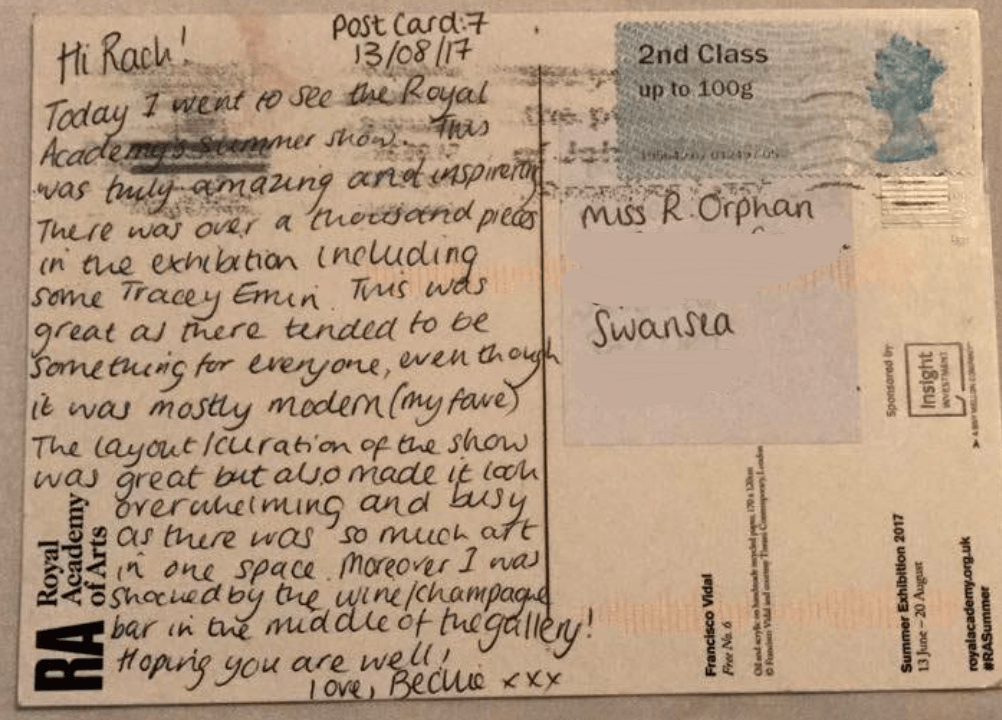 Post Card:7
13/08/17
Hi Rach!
Today I went to see the Royal
Academy's Summer show. This
was truly amazing and inspirering
There was over a thousand pieces
in the exhibition including
some Tracey Emin. This was
great as there tended to be
something for everyone, even though
it was mostly modern (my fave)
The layout/curation of the show
was great but also made it look
overwhelming and busy
as there was so much art
in one space. Moreover I was
shocked by the wine/champagne
bar in the middle of the gallery!
Hoping you are well!
Love, Beckie xxx
RA Royal
Academy
of Arts
2nd Class
up to 100g
Miss R. Orphan
Swansea
Sponsored by:
Insight
INVESTMENT
Francisco Vidal
Free No. 6
Oil and acrylic on handmade recycled paper, 170 x 120cm
© Francisco Vidal and courtesy Tiwani Contemporary, London
Summer Exhibition 2017
13 June – 20 August
royalacademy.org.uk
#RASummer